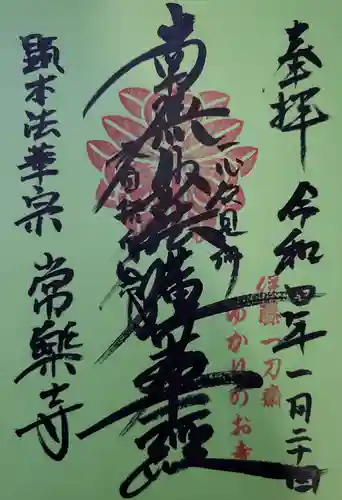 奉拝
令和四年一月二十四
伊藤一刀斎
ゆかりのお寺
一心欲見佛
南無妙法蓮華経
不自惜身命
顕本法華宗
常樂寺